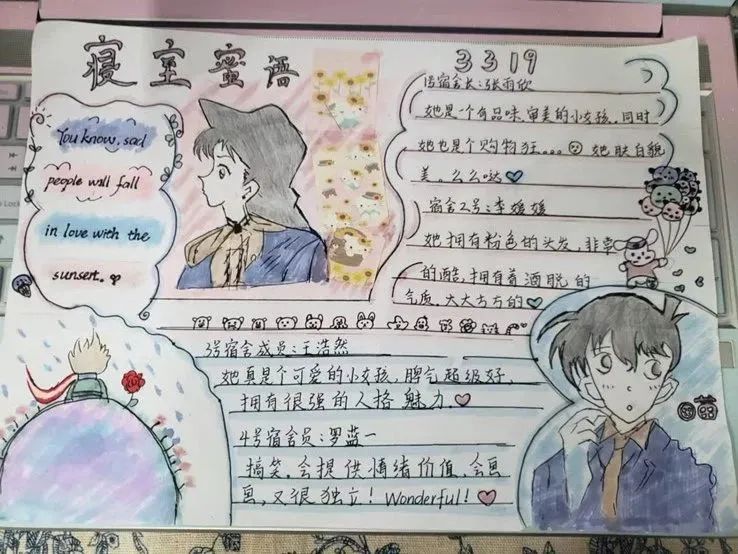 寝室蜜语
3319
You know, sad
people will fall
in love with the
sunsert.
1号宿舍长:张雨欣
她是一个有品味,审美的小女孩,同时
她也是个购物狂。。。她肤白貌
美,么么哒
宿舍2号:李媛媛
她拥有粉色的头发,非常
的酷,拥有着洒脱的
气质。大大方方的
3号宿舍成员:王浩然
她真是个可爱的小女孩,脾气超级好,
拥有很强的人格魅力。
4号宿舍员:罗蓝一
搞笑。会提供情绪价值,会画
画,又很独立!Wonderful!